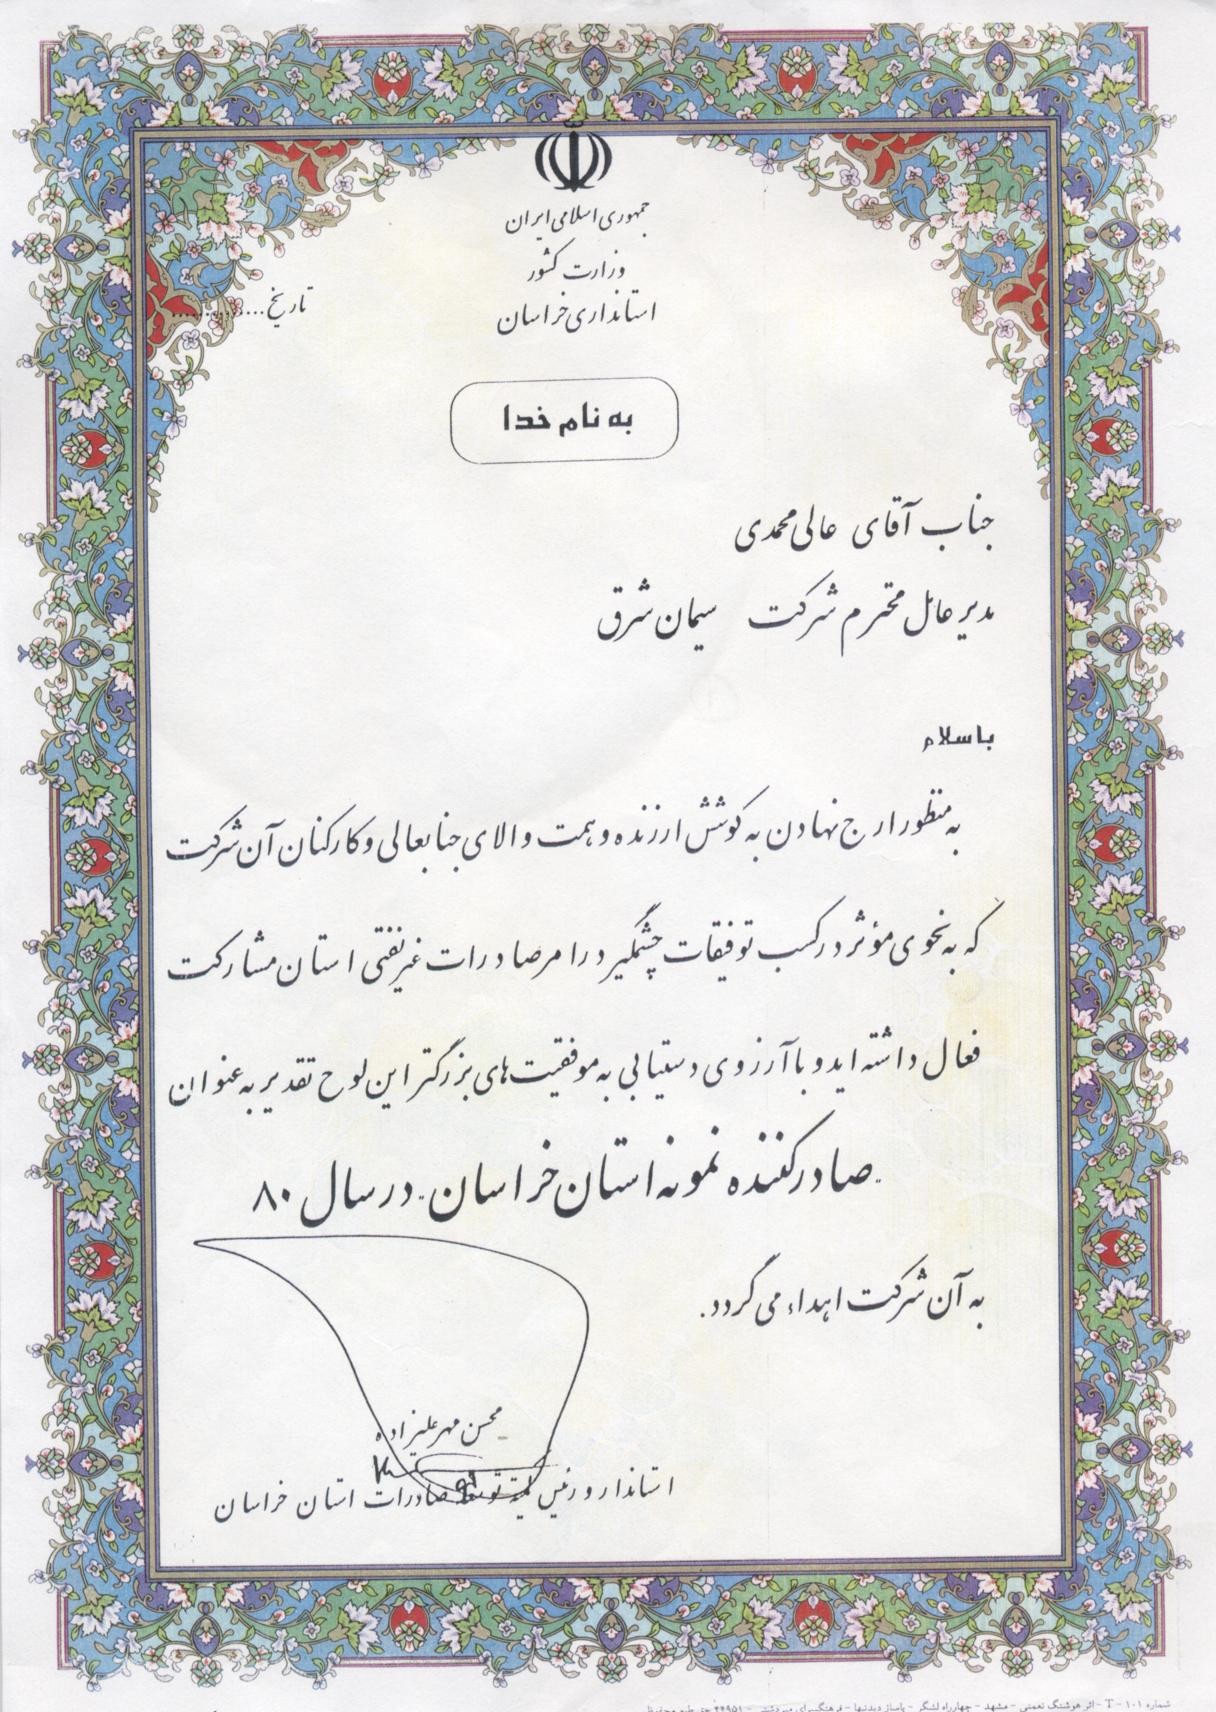 جمهوری اسلامی ایران
وزارت کشور
استانداری خراسان
تاریخ..............
به نام خدا
جناب آقای عالی محمدی
مدیر عامل محترم شرکت سیمان شرق
باسلام
به منظور ارج نهادن به کوشش ارزنده و همت والای جنابعالی و کارکنان آن شرکت
که به نحوی مؤثر در کسب توفیقات چشمگیر در امر صادرات غیر نفتی استان مشارکت
فعال داشته اید و با آرزوی دستیابی به موفقیت های بزرگتر این لوح تقدیر به عنوان
"صادر کننده نمونه استان خراسان" در سال ۸۰
به آن شرکت اهداء می گردد.
محسن مهر علیزاده
استاندار و رئیس کمیته توسعه صادرات استان خراسان
شماره ۱۰۱ - T - اثر هوشنگ نعمتی - مشهد - چهارراه لشگر - پاساژ دیدنیها -